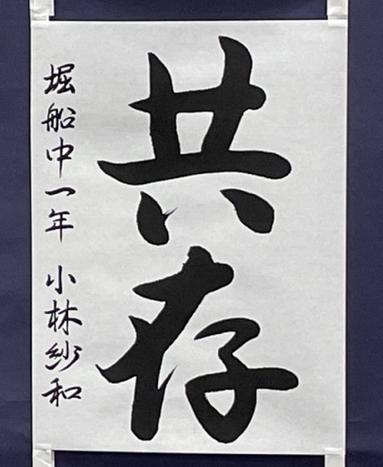 共存
堀船中一年 小林紗和